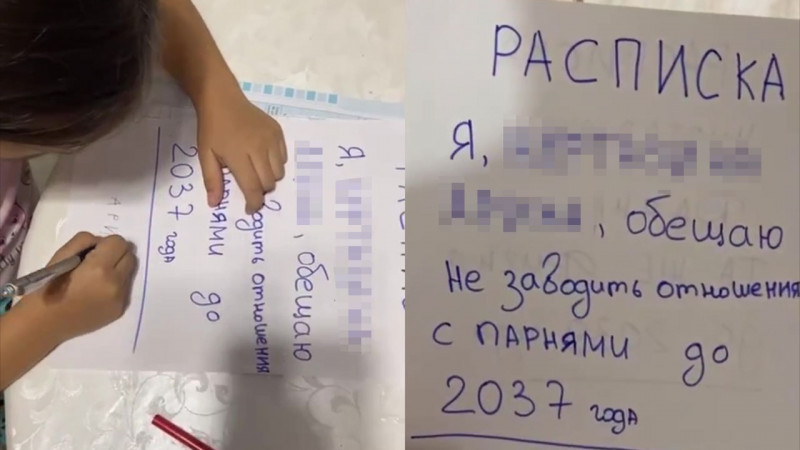 Я,
, обещаю
водить отношения
парнями до
2037 года
АРИ
РАСПИСКА
Я,
, обещаю
не заводить отношения
с парнями до
2037 года